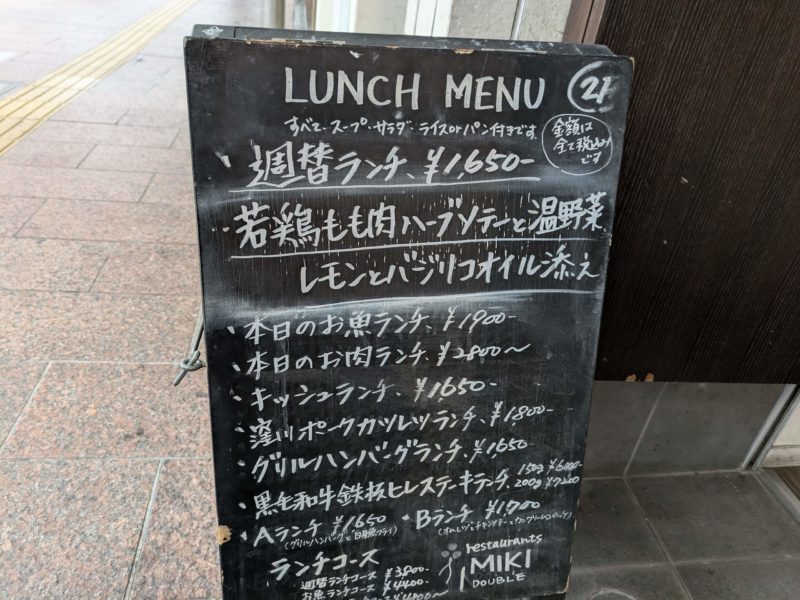 LUNCH MENU
21
すべて・スープ・サラダ・ライスorパン付きです。
金額は
全て税込み
です
・週替ランチ、¥1,650-
若鶏もも肉ハーブソテーと温野菜、
レモンとバジリコオイル添え
・本日のお魚ランチ、¥1900-
・本日のお肉ランチ、¥2800〜
・キッシュランチ、¥1650-
・窪川ポークカツレツランチ、¥1,800-
・グリルハンバーグランチ、¥1650
・黒毛和牛鉄板ヒレステーキランチ、150g ¥6000- 200g ¥7200
・Aランチ ¥1650 ・Bランチ ¥1,700
(グリルハンバーグと白身魚フライ)
ランチコース
週替ランチコース ¥3,800-
お魚ランチコース ¥4,400-
restaurants
MIKI
DOUBLE